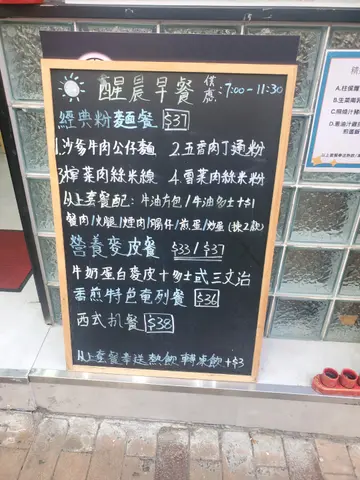 醒晨早餐 供應:7:00-11:30
經典粉麵餐 $37
1.沙爹牛肉公仔麵 2.五香肉丁通粉
3.榨菜肉絲米線 4.雪菜肉絲米粉
以上套餐配:牛油方包/牛油多士+$1
餐肉/火腿/煙肉/腸仔/煎蛋/炒蛋(揀2款)
營養麥皮餐 $33/$37
牛奶蛋白麥皮+多士或三文治
香煎特色奄列餐 $36
西式扒餐 $38
以上套餐奉送熱飲 轉凍飲+$3